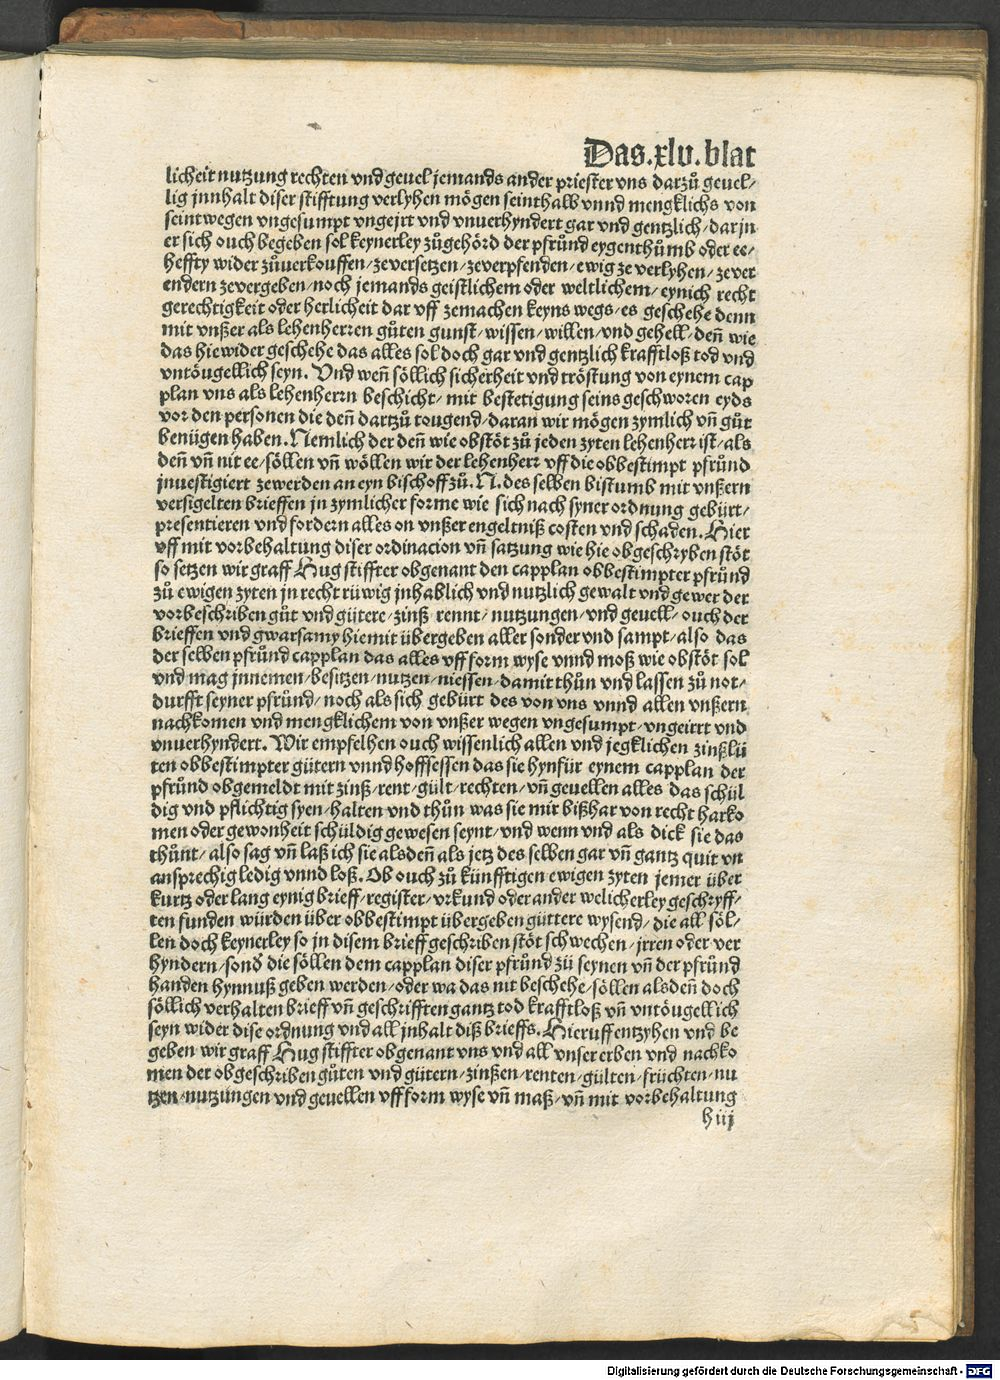 Das.xlv.blat
licheit nutzung rechten vnd geuel jemands ander priester vns darzů geuel⸗
lig jnnhalt diser stifftung verlyhen mögen seinthalb vnnd mengklichs von
seint wegen vngesumpt vngejrt vnd vnuerhyndert gar vnd gentzlich/dar jn
er sich ouch begeben sol keynerley zůgehörd der pfrůnd eygenthůmb oder ee⸗
heffty wider zůuerkouffen/zeversetzen/zeverpfenden/ewig ze verlyhen/zever
endern zevergeben/noch jemands geistlichem oder weltlichem/eynich recht
gerechtigkeit oder herlicheit dar vff zemachen keyns wegs/es geschehe denn
mit vnßer als lehenherren gůten gunst/wissen/willen/vnd gehell/deñ wie
das hie wider geschehe das alles sol doch gar vnd gentzlich krafftloß tod vnd
vntöugellich seyn. Vnd weñ söllich sicherheit vnd tröstung von eynem cap
plan vns als lehenherrn beschicht/mit bestetigung seins geschworen eyds
vor den personen die deñ dartzů tougend/daran wir mögen zymlich vñ gůt
benügen haben. Nemlich der deñ wie obstöt zů jeden zyten lehenherr ist/als
deñ vñ nit ee/söllen vñ wöllen wir der lehenherr vff die obbestimpt pfrůnd
jnuestigiert zewerden an eyn bischoff zů.N.des selben bistumb mit vnßern
versigelten brieffen jn zymlicher forme wie sich nach syner ordnung gebürt/
presentieren vnd fordern alles on vnßer engeltniß costen vnd schaden. Hier
vff mit vorbehaltung diser ordinacion vñ satzung wie hie obgeschryben stöt
so setzen wir graff Hug stiffter obgenant den capplan obbestimpter pfrůnd
zů ewigen zyten jn recht rüwig jnhablich vnd nutzlich gewalt vnd gewer der
vorbeschriben gůt vnd gütere/zinß/rennt/nutzungen/vnd geuell/ouch der
brieffen vnd gwarsamy hiemit übergeben aller sonder vnd sampt/also das
der selben pfrůnd capplan das alles vff form wyse vnnd moß wie obstöt sol
vnd mag jnnemen/besitzen/nutzen/niessen/damit thůn vnd lassen zů not/
durfft seyner pfrůnd/noch als sich gebürt des von vns vnnd allen vnßern
nachkomen vnd mengklichem von vnßer wegen vngesumpt/vngeirrt vnd
vnuerhyndert. Wir empfelhen ouch wissenlich allen vnd jegklichen zinßlü
ten obbestimpter gütern vnnd hoffsessen das sie hynfür eynem capplan der
pfrůnd obgemeldt mit zinß/rent/gült/rechten/vñ geuellen alles das schül
dig vnd pflichtig syen/halten vnd thůn was sie mir bißhar von recht harko
men oder gewonheit schüldig gewesen seynt/vnd wenn vnd als dick sie das
thůnt/also sag vñ laß ich sie alsdeñ als jetz des selben gar vñ gantz quit vn
ansprechig ledig vnnd loß. Ob ouch zů künfftigen ewigen zyten jemer über
kurtz oder lang eynig brieff/register/vrkund oder ander welicherley geschryff⸗
ten funden würden über obbestimpt übergeben güttere wysend/die all söl⸗
len doch keynerley so in disem brieff geschriben stöt schwechen/jrren oder ver
hyndern/sond̕ die söllen dem capplan diser pfrůnd zů seynen vñ der pfrůnd
handen hynnuß geben werden/oder wa das nit beschehe/söllen alsdeñ doch
söllich verhalten brieff vñ geschrifften gantz tod krafftloß vñ vntöugellich
seyn wider dise ordnung vnd all jnhalt diß brieffs. Hieruff entzyhen vnd be
geben wir graff Hug stiffter obgenant vns vnd all vnser erben vnd nachko
men der obgeschriben gůten vnd gütern/zinßen/renten/gülten/früchten/nu
tzen/nutzungen vnd geuellen vff form wyse vñ maß/vñ mit vorbehaltung
h iij
Digitalisierung gefördert durch die Deutsche Forschungsgemeinschaft - DFG